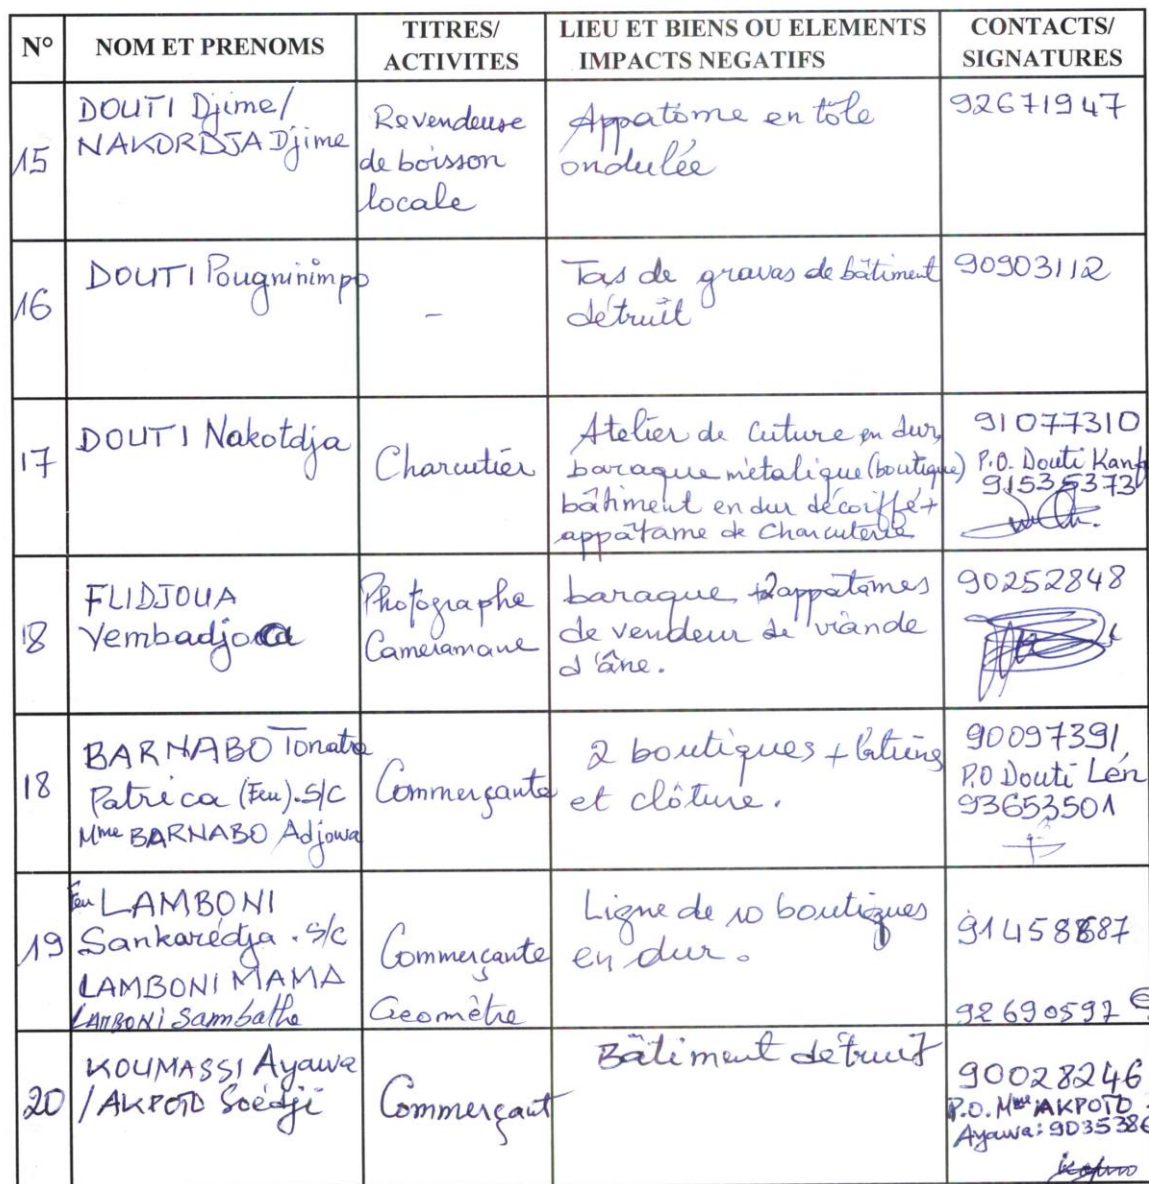 N° NOM ET PRENOMS TITRES/ ACTIVITES LIEU ET BIENS OU ELEMENTS IMPACTS NEGATIFS CONTACTS/ SIGNATURES
15
DOUTI Djime/
NAKORDJA Djime
Revendeuse
de boisson
locale
Appatâme en tôle
ondulée
92671947
16
DOUTI Pougninimpo
-
Tas de gravas de bâtiment
détruit
90903112
17
DOUTI Nakotdja
Charcutier
Atelier de cuture en dur,
baraque métalique (boutique)
bâtiment en dur décoiffé +
appâtame de Charcuterie
91077310
P.O. Douti Kanf
91535373
18
FLIDJOUA
Yembadjoa
Photographe
Cameramane
baraque +2 appatâmes
de vendeur de viande
d'âne.
90252848
18
BARNABO Tonatre
Patrica (Feu). S/C
Mme BARNABO Adjowa
Commerçante
2 boutiques + latrines
et clôture.
90097391
P.O Douti Lén
93653501
19
Feu LAMBONI
Sankarédja. S/C
LAMBONI MAMA
LAMBONI Sambathe
Commerçante
Geomètre
Ligne de 10 boutiques
en dur.
91458687
92690597
20
KOUMASSI Ayawa
/ AKPOTO Soédji
Commerçant
Bâtiment detruit
90028246
P.O. Mme AKPOTO
Ayawa: 9035386